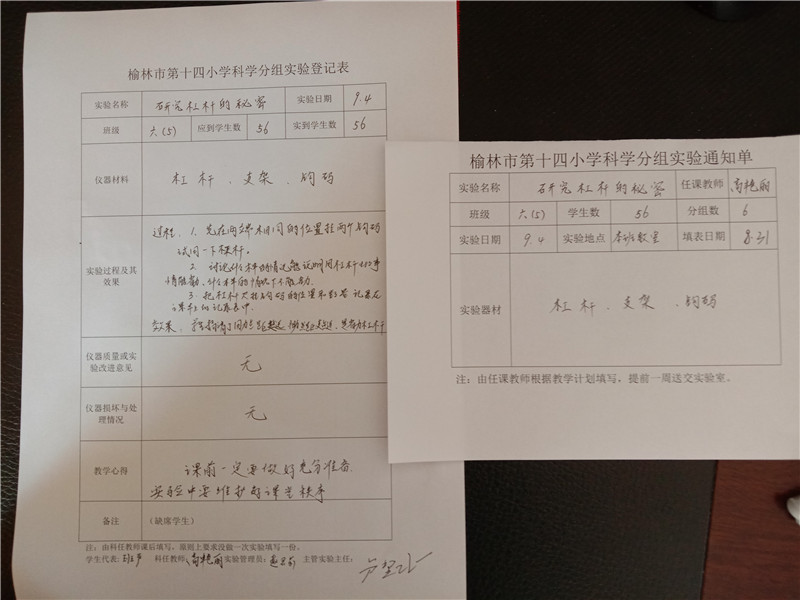 榆林市第十四小学科学分组实验登记表
实验名称 研究杠杆的秘密 实验日期 9.4
班级 六(5) 应到学生数 56 实到学生数 56
仪器材料 杠杆、支架、钩码
实验过程及其效果
过程、1. 先在两端相同的位置挂两个钩码
试用一下杠杆。
2. 讨论什么样的情况能说明用杠杆
情能省力,什么样的情况下不能省力.
3. 把杠杆尺挂钩码的位置和数量记录在
记录表中.
效果、
仪器质量或实验改进意见 无
仪器损坏与处理情况 无
教学心得 课前一定要做好充分准备.
实验中要维护好课堂秩序
备注 (缺席学生)
注:由科任教师课后填写,原则上要求没做一次实验填写一份。
学生代表: 科任教师:高艳丽 实验管理员: 主管实验主任:
榆林市第十四小学科学分组实验通知单
实验名称 研究杠杆的秘密 任课教师 高艳丽
班级 六(5) 学生数 56 分组数 6
实验日期 9.4 实验地点 本班教室 填表日期 8.31
实验器材 杠杆、支架、钩码
注:由任课教师根据教学计划填写,提前一周送交实验室。